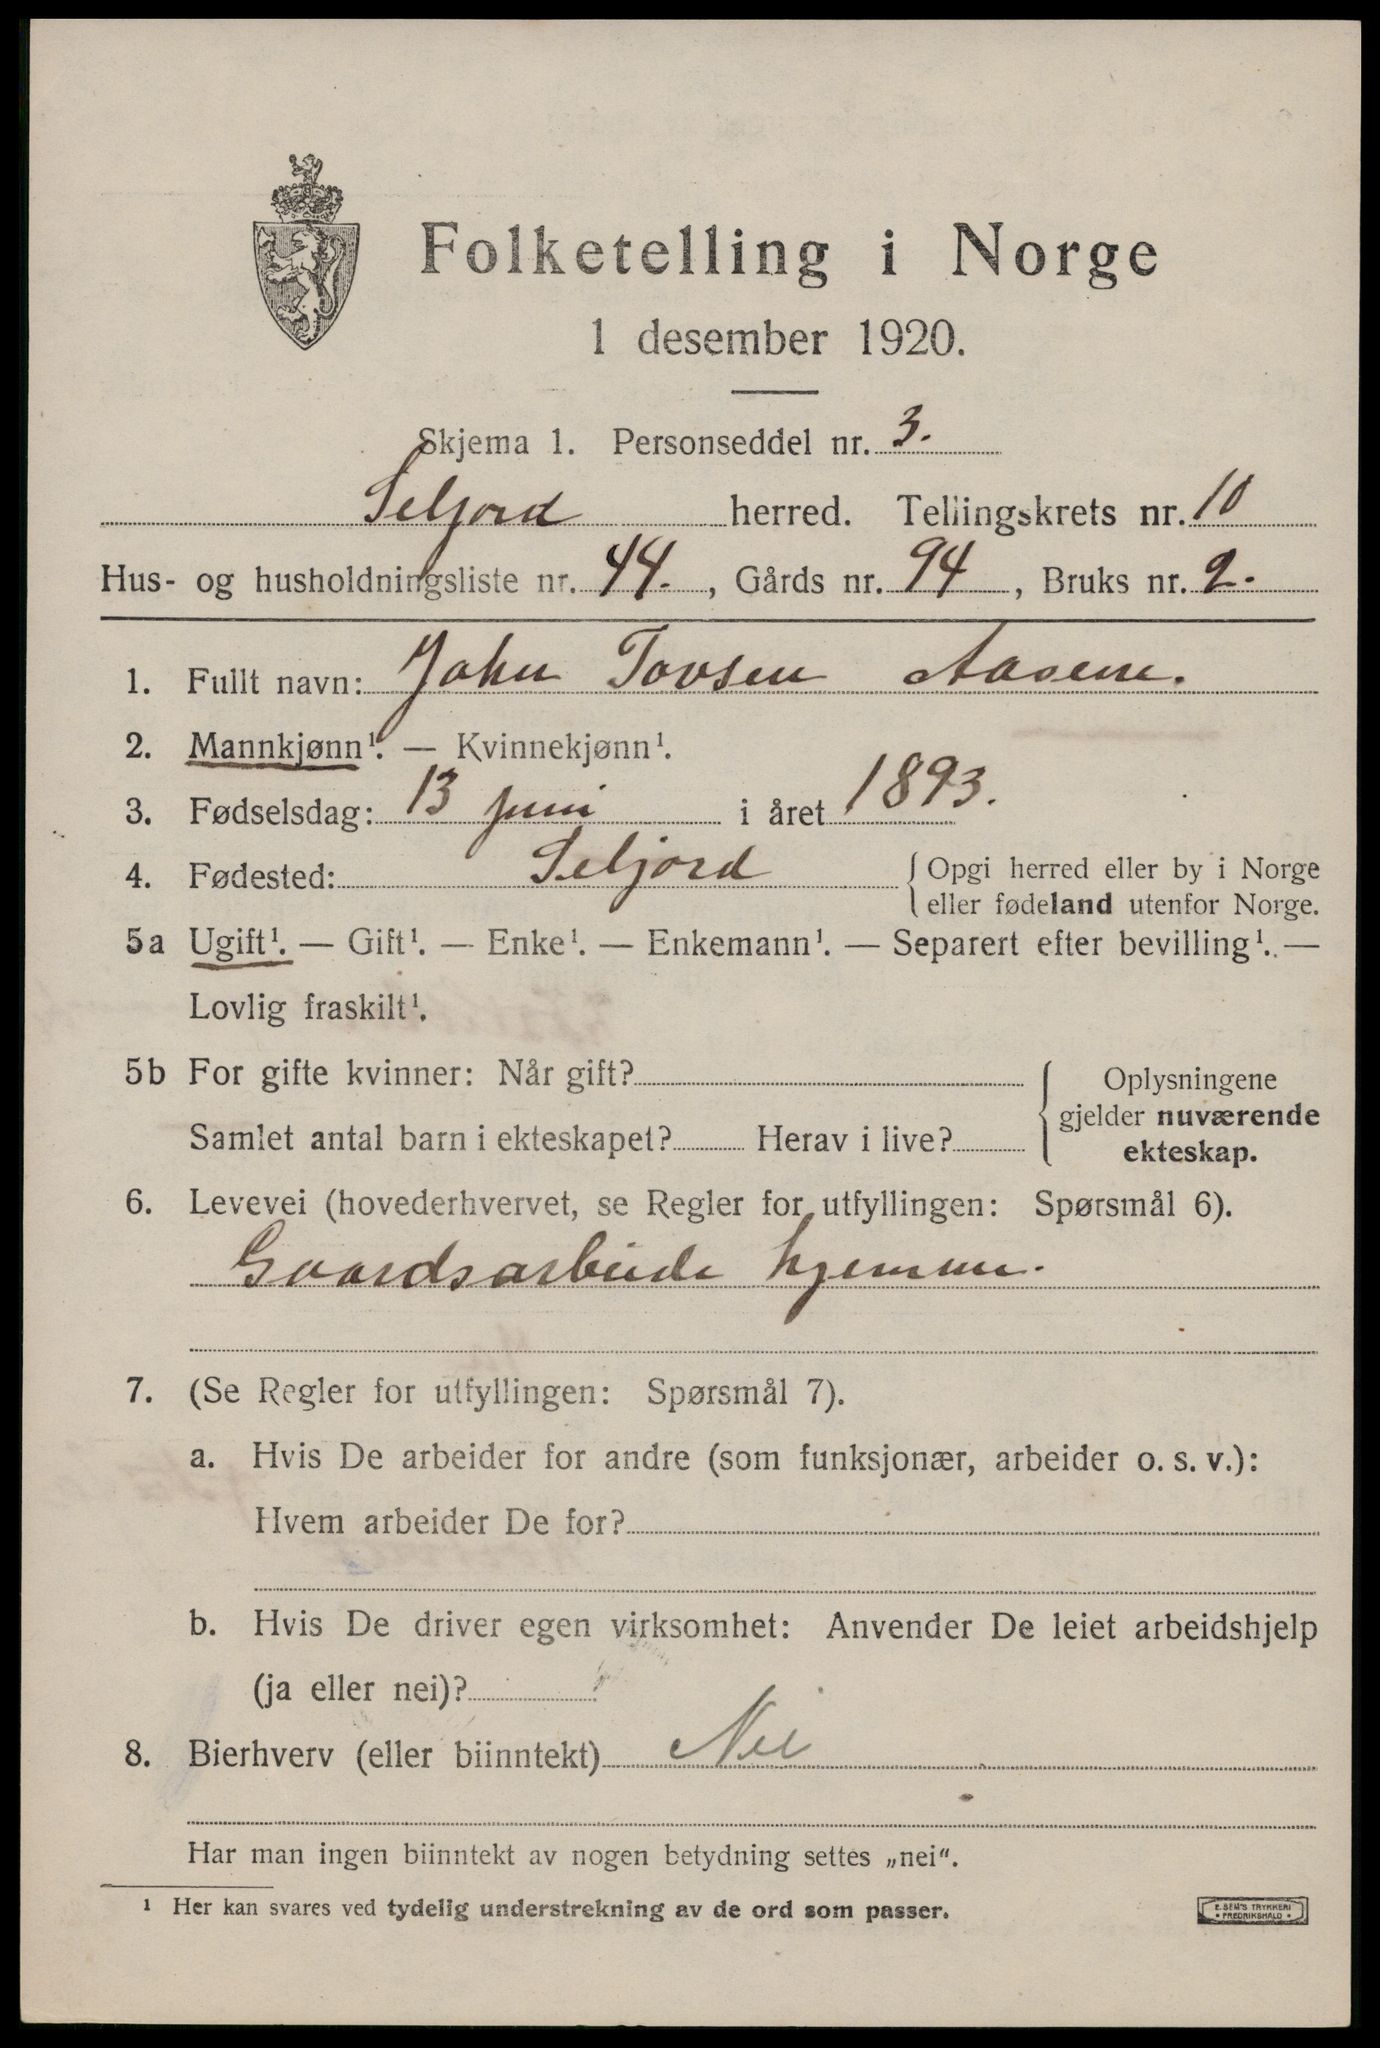 Folketelling i Norge
1 desember 1920.
Skjema 1. Personseddel nr. 3.
Seljord herred. Tellingskrets nr. 10
Hus- og husholdningsliste nr. 44., Gårds nr. 94, Bruks nr. 2.
1. Fullt navn: John Tovsen Aasene.
2. Mannkjønn¹. — Kvinnekjønn¹.
3. Fødselsdag: 13 juni i året 1893.
4. Fødested: Seljord { Opgi herred eller by i Norge
eller fødeland utenfor Norge.
5a Ugift¹. — Gift¹. — Enke¹. — Enkemann¹. — Separert efter bevilling¹. —
Lovlig fraskilt¹.
5b For gifte kvinner: Når gift?
Samlet antal barn i ekteskapet? Herav i live?
Oplysningene
gjelder nuværende
ekteskap.
6. Levevei (hovederhvervet, se Regler for utfyllingen: Spørsmål 6).
Gaardsarbeide hjemme.
7. (Se Regler for utfyllingen: Spørsmål 7).
a. Hvis De arbeider for andre (som funksjonær, arbeider o. s. v.):
Hvem arbeider De for?
b. Hvis De driver egen virksomhet: Anvender De leiet arbeidshjelp
(ja eller nei)?
8. Bierhverv (eller biinntekt) Nei
Har man ingen biinntekt av nogen betydning settes „nei".
¹ Her kan svares ved tydelig understrekning av de ord som passer.
E. SEM'S TRYKKERI
• FREDRIKSHALD •